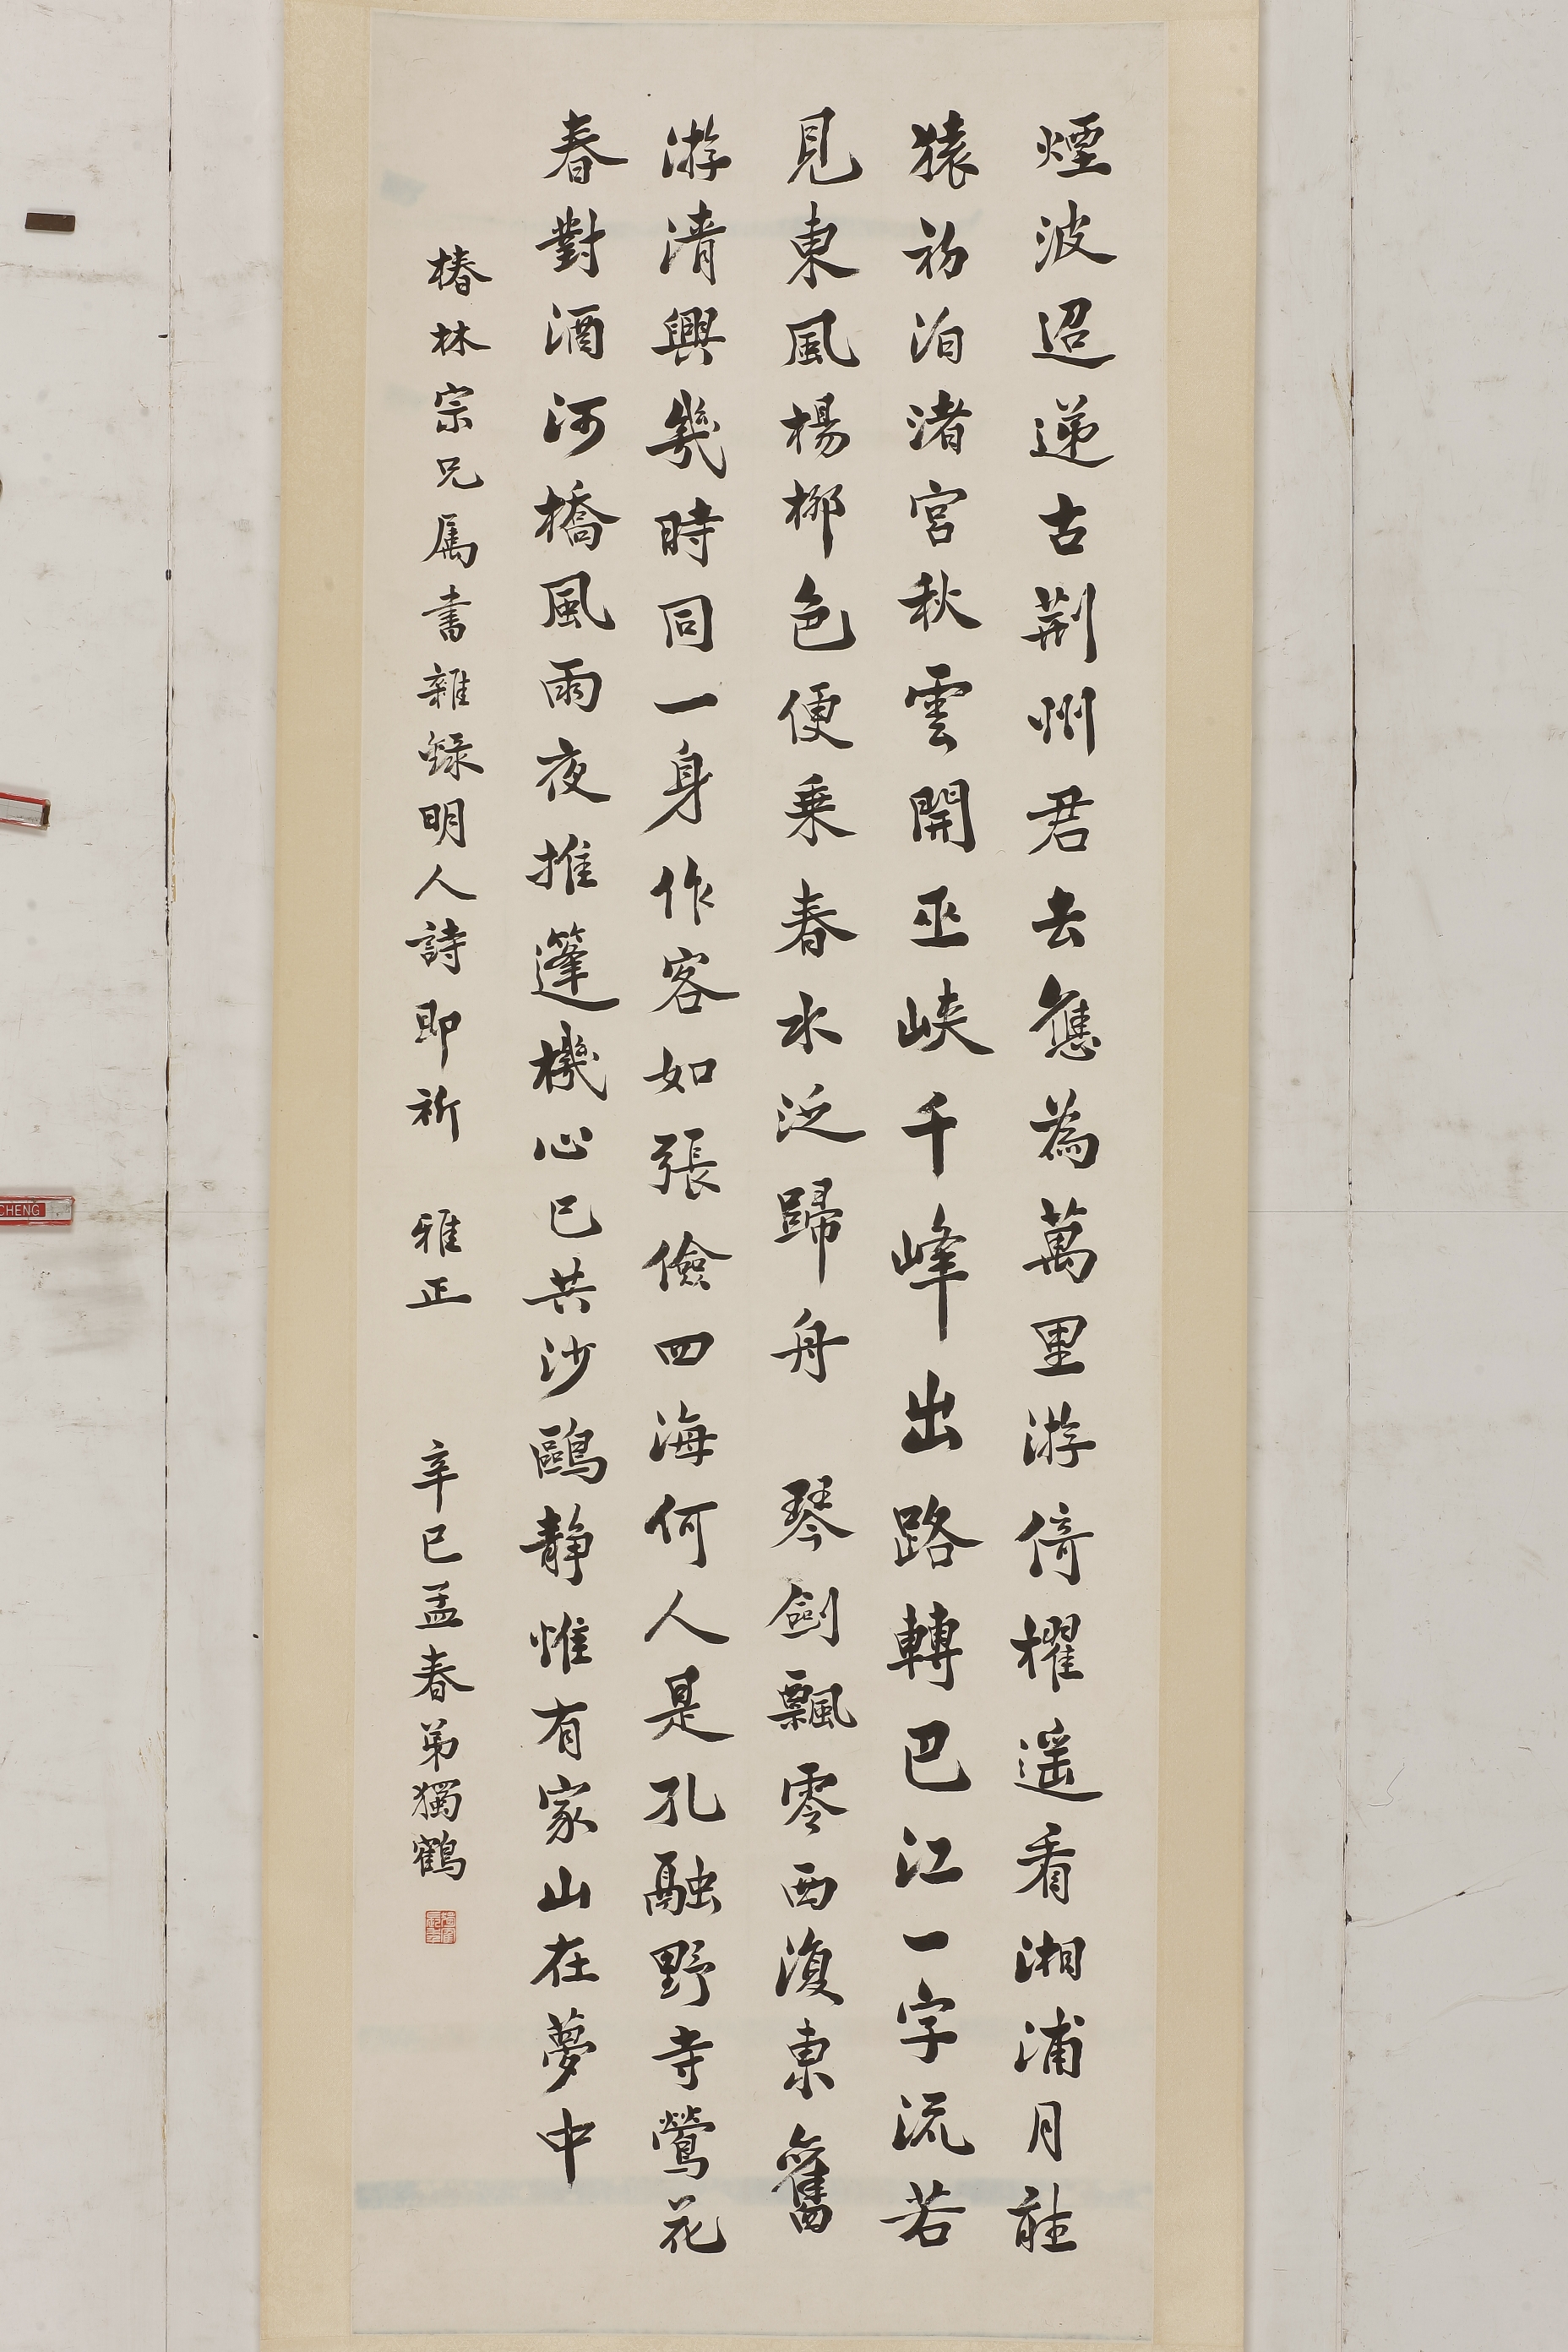 煙波迢递古荆州君去應為萬里游倚櫂遥看湘浦月聽
猿初泊渚宫秋雲開巫峽千峰出路轉巴江一字流若
見東風楊栁色便乗春水泛歸舟 琴劍飄零西復東舊
游清興幾時同一身作客如張儉四海何人是孔融野寺鶯花
春對酒河橋風雨夜推篷機心已共沙鷗静惟有家山在夢中
椿林宗兄属書雜録明人詩即祈 雅正 辛巳孟春弟獨鶴
CHENG